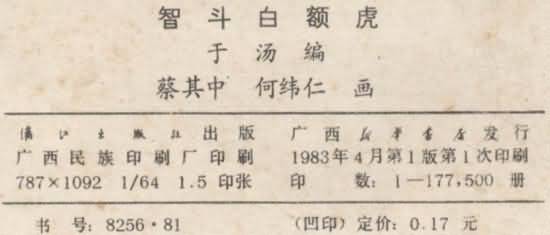 智斗白额虎
于汤编
蔡其中 何纬仁 画
漓江出版社出版 广西新华书店发行
广西民族印刷厂印刷 1983年4月第1版第1次印刷
787×1092 1/64 1.5 印张 印 数: 1—177,500 册
书 号: 8256·81 (凹印) 定价: 0.17 元